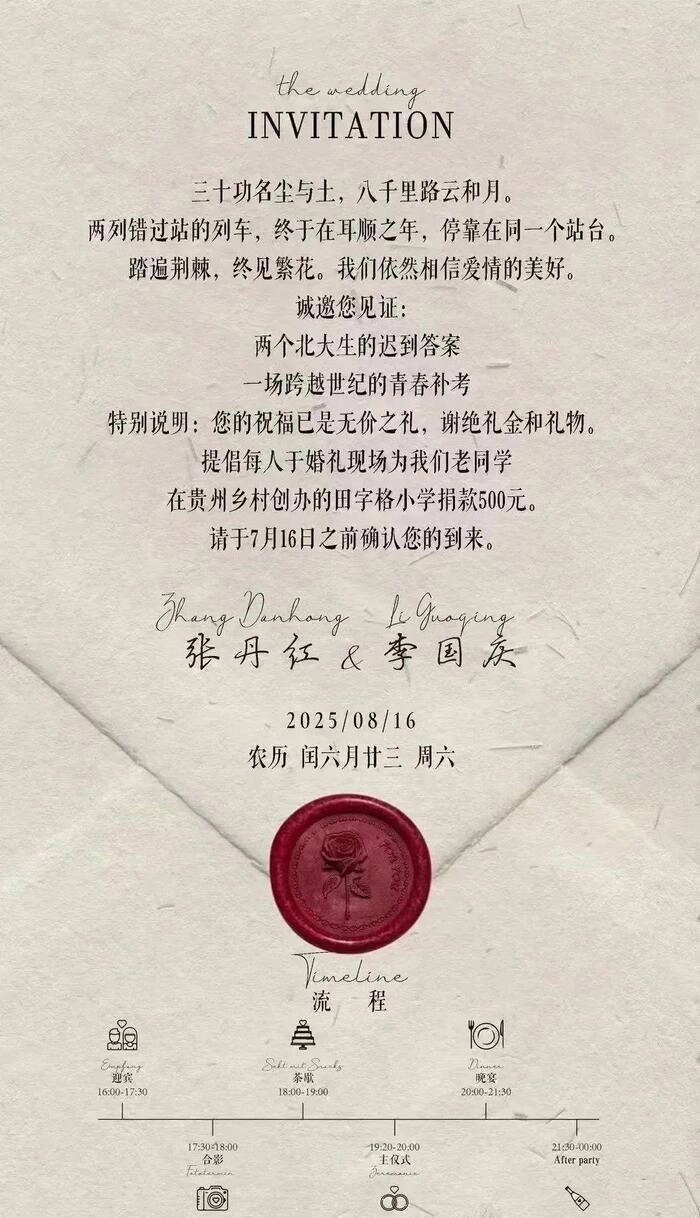 the wedding
INVITATION
三十功名尘与土，八千里路云和月。
两列错过站的列车，终于在耳顺之年，停靠在同一个站台。
踏遍荆棘，终见繁花。我们依然相信爱情的美好。
诚邀您见证：
两个北大生的迟到答案
一场跨越世纪的青春补考
特别说明：您的祝福已是无价之礼，谢绝礼金和礼物。
提倡每人于婚礼现场为我们老同学
在贵州乡村创办的田字格小学捐款500元。
请于7月16日之前确认您的到来。
Zhang Danhong Li Guoqing
张丹红 & 李国庆
2025/08/16
农历 闰六月廿三 周六
FOR YOU
Timeline
流 程
Empfang Sekt mit Snacks Dinner
迎宾 茶歇 晚宴
16:00-17:30 18:00-19:00 20:00-21:30
17:30-18:00 19:20-20:00 21:30-00:00
合影 主仪式 After party
Fototermin Zeremonie